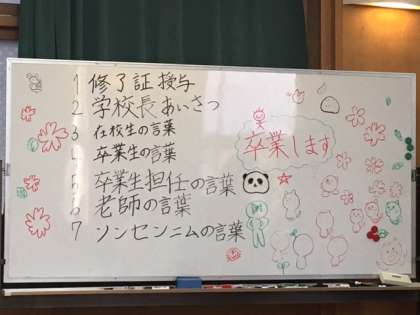 1 修了証授与
2 学校長あいさつ
3 在校生の言葉
4 卒業生の言葉
5 卒業生担任の言葉
6 老師の言葉
7 ソンセンニムの言葉
卒業します